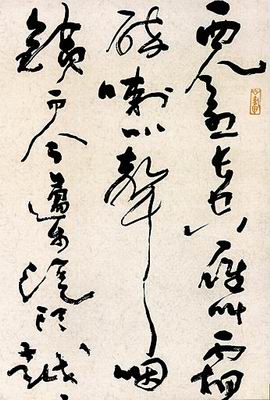 西風烈長空雁叫霜
碎喇叭聲咽
鐵而今邁步從頭越